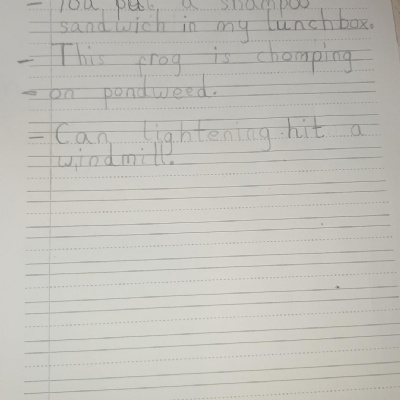 - You put a shampoo
sandwich in my lunchbox.
- This frog is chomping
- on pondweed.
- Can lightening hit a
windmill.